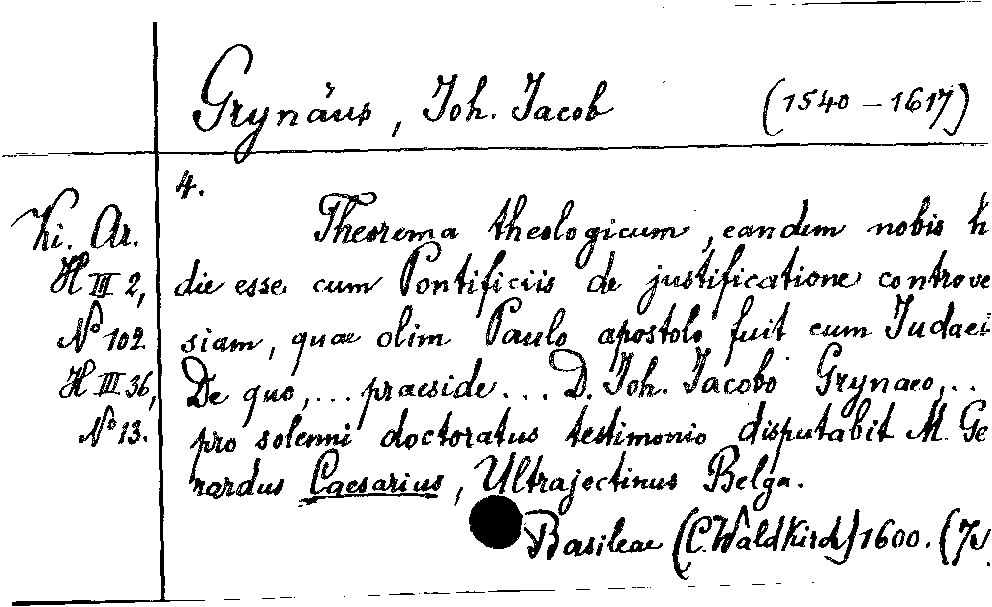 Grynäus, Joh. Jacob (1540–1617)
4.
Ki. Ar.
H III 2,
No 102.
H III 36,
No 13.
Theorema theologicum, eandem nobis h
die esse cum Pontificiis de justificatione controve
siam, quae olim Paulo apostolo fuit cum Judaei
De quo, ... praeside ... D. Joh. Jacobo Grynaeo, ..
pro solenni doctoratus testimonio disputabit M. Ge
rardus Caesarius, Ultrajectinus Belga.
Basileae (C. Waldkirch) 1600.